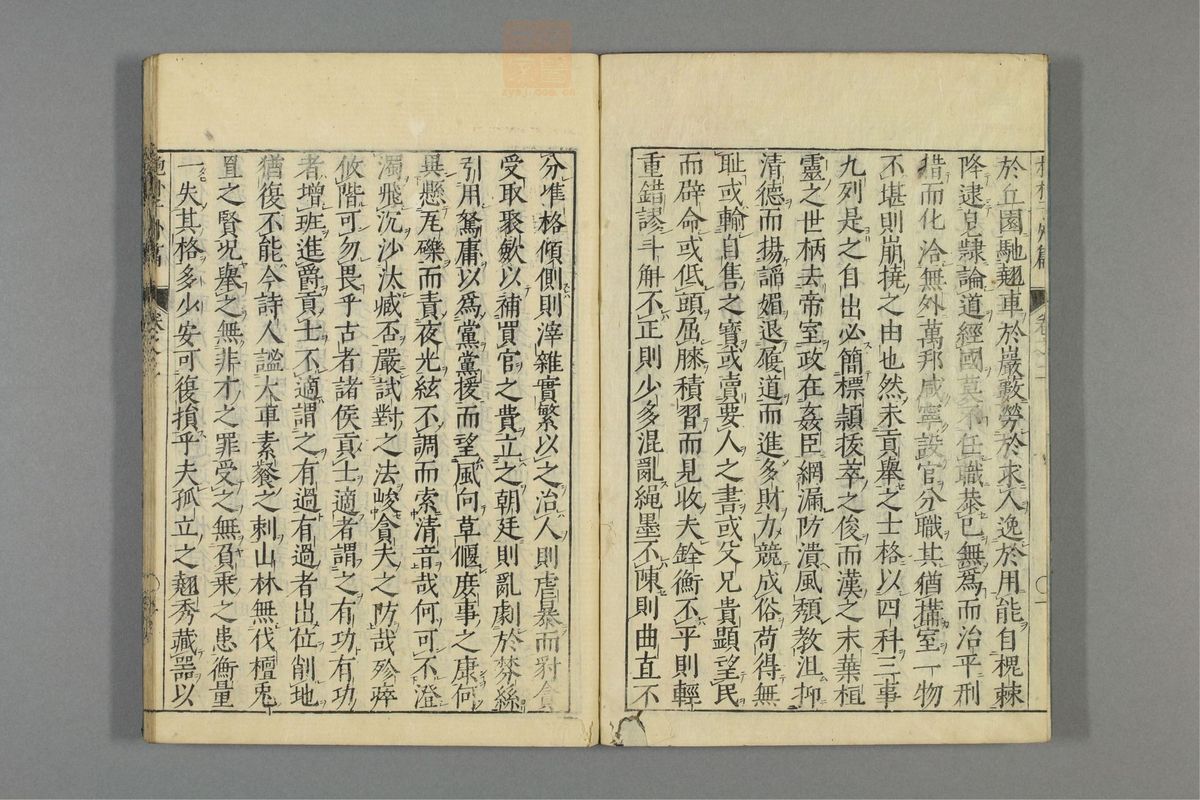 於丘園馳翹車於巖藪勞於求人逸於用能自槐棘
降逮皂隸論道經國莫不任職恭己無爲而治平刑
措而化洽無外萬邦咸寧設官分職其猶搆室一物
不堪則崩撓之由也然夫貢舉之士格以四科三事
九列是之自出必簡標穎拔萃之俊而漢之末葉桓
靈之世柄去帝室政在姦臣網漏防潰風頽教沮抑
清德而揚謟媚退履道而進多財力競成俗苟得無
耻或輸自售之寶或賣要人之書或父兄貴顯望民
而辟命或低頭屈膝積習而見收夫銓衡不平則輕
重錯謬斗斛不正則少多混亂繩墨不陳則曲直不
分准格傾側則滓雜實繁以之治人則虐暴而對貪
受取聚歛以補買官之費立之朝廷則亂劇於棼絲
引用駑庸以爲黨援而望風向草偃庶事之康何
異懸瓦礫而責夜光絃不調而索清音哉何可不澄
濁飛沉沙汰臧否嚴試對之法峻貪夫之防哉殄瘁
攸階可勿畏乎古者諸侯貢士適者謂之有功有功
者增班進爵貢士不適謂之有過有過者出位削地
猶復不能令詩人謐大車素餐之刺山林無伐檀兎
罝之賢况舉之無非才之罪受之無負乗之患衡量
一失其格多少安可復損乎夫孤立之翹秀藏噐以